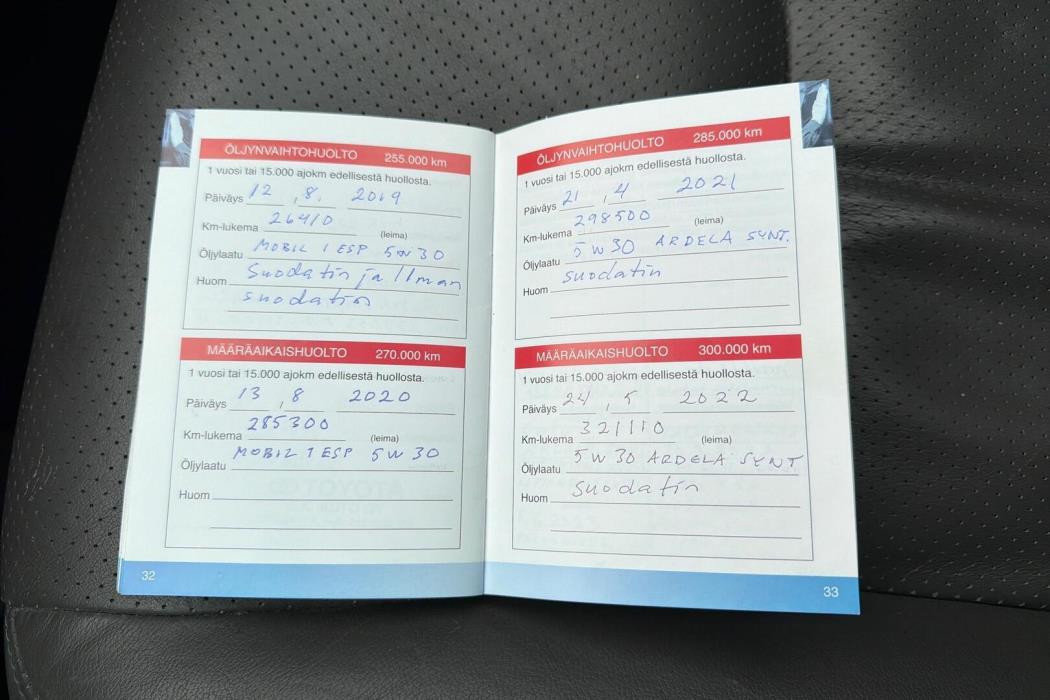 ÖLJYNVAIHTOHUOLTO 255.000 km
1 vuosi tai 15.000 ajokm edellisestä huollosta.
Päiväys 12 , 8. 2019
Km-lukema 26410
(leima)
Öljylaatu MOBIL 1 ESP 5W30
Huom Suodatin ja Ilman
suodatin
MÄÄRÄAIKAISHUOLTO 270.000 km
1 vuosi tai 15.000 ajokm edellisestä huollosta.
Päiväys 13 , 8 2020
Km-lukema 285300
(leima)
Öljylaatu MOBIL 1 ESP 5W30
Huom
32
ÖLJYNVAIHTOHUOLTO 285.000 km
1 vuosi tai 15.000 ajokm edellisestä huollosta.
Päiväys 21 , 4 2021
Km-lukema 298500
(leima)
Öljylaatu 5W30 ARDELA SYNT.
Huom suodatin
MÄÄRÄAIKAISHUOLTO 300.000 km
1 vuosi tai 15.000 ajokm edellisestä huollosta.
Päiväys 24 , 5 2022
Km-lukema 321110
(leima)
Öljylaatu 5W30 ARDELA SYNT
Huom suodatin
33